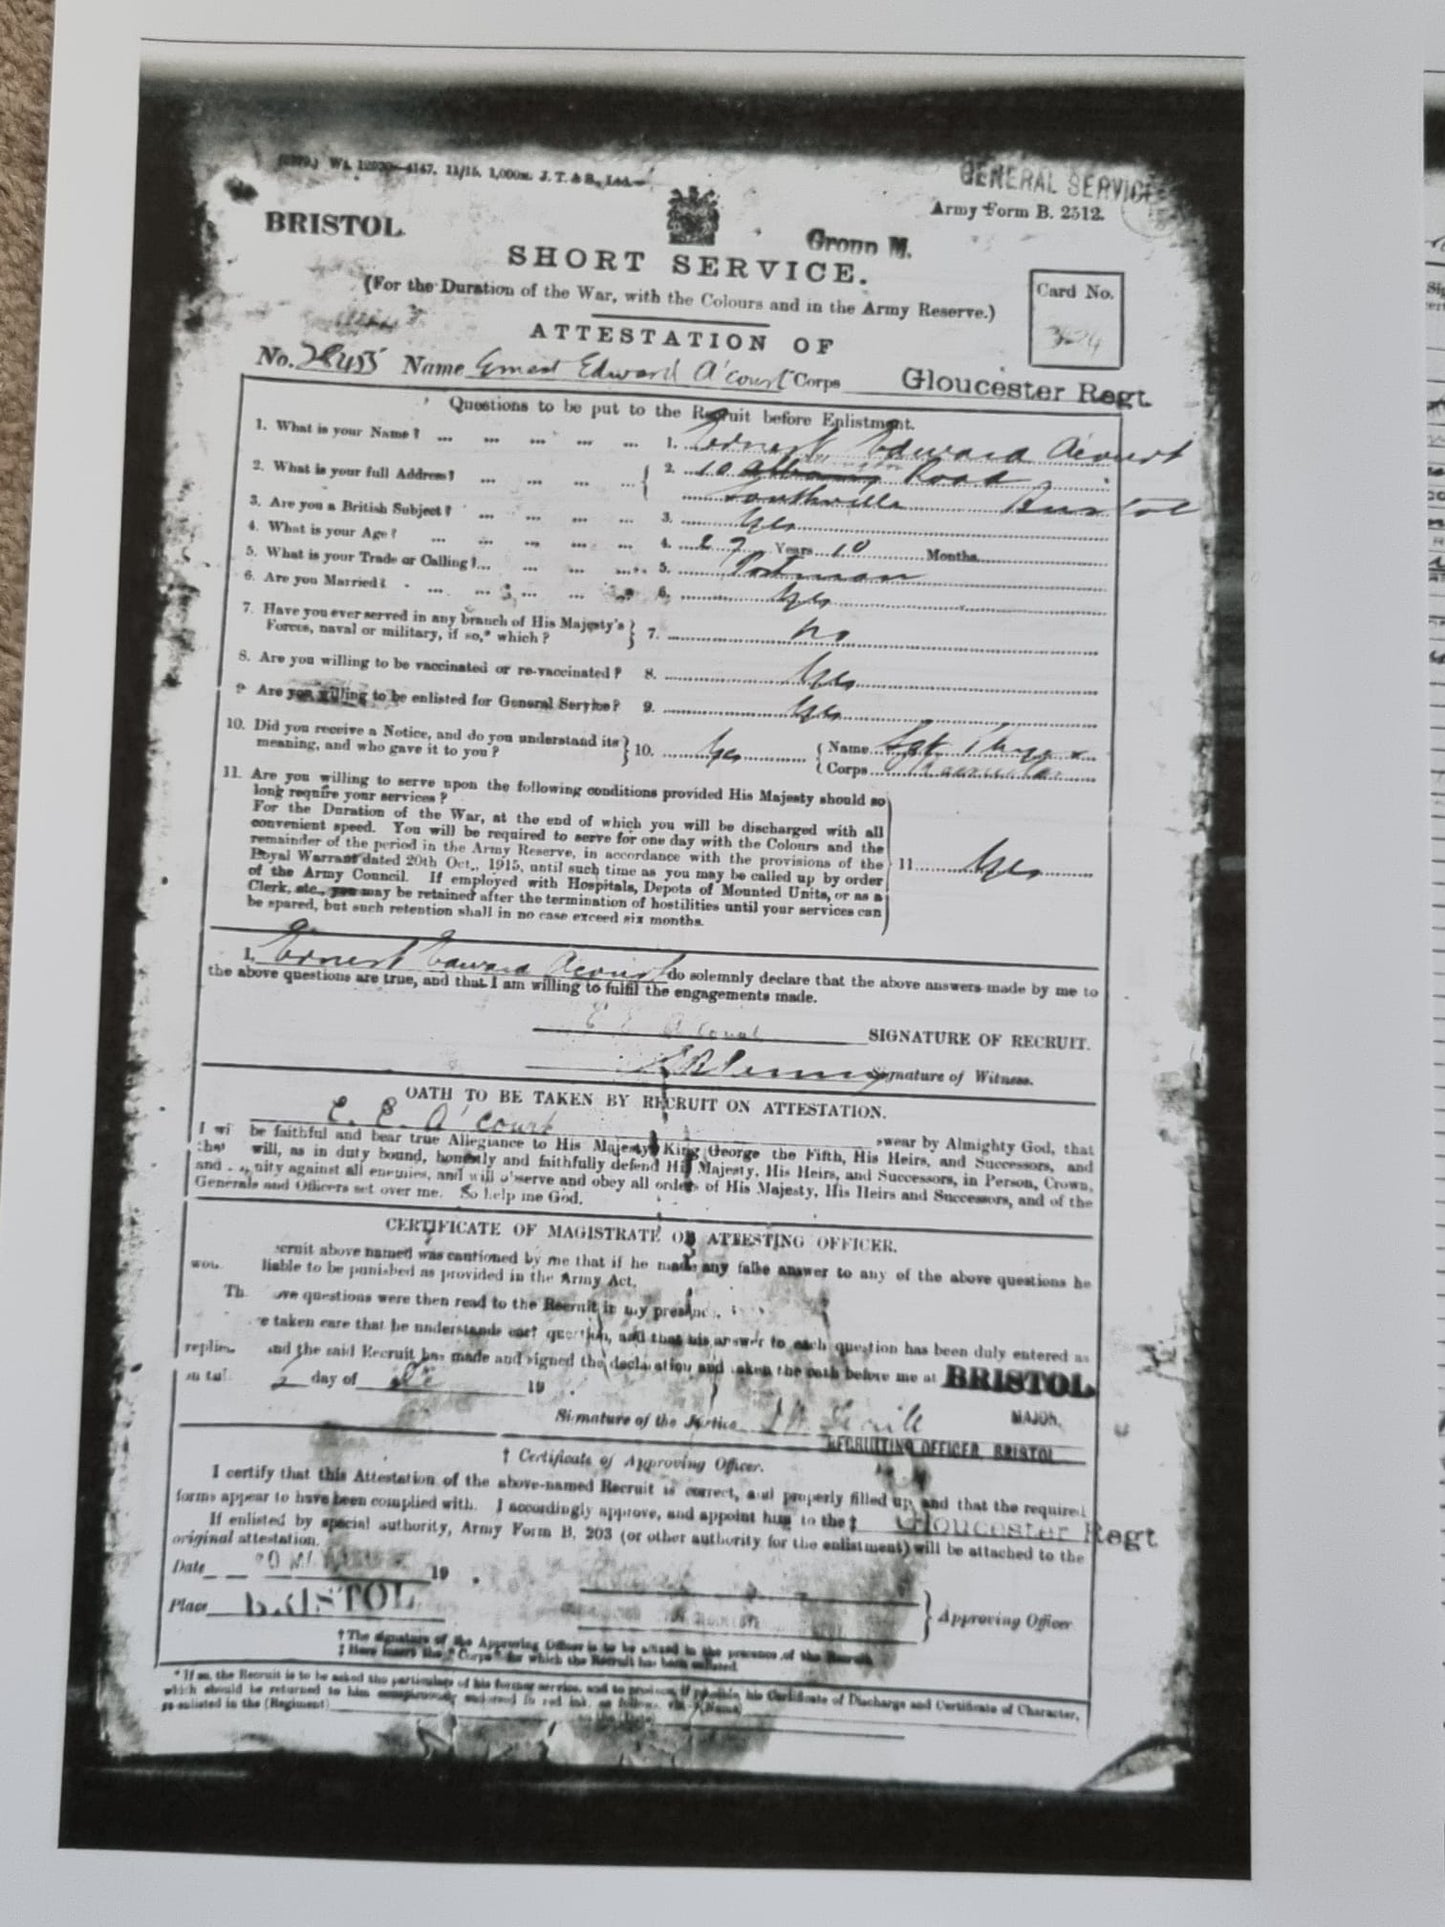 11/15. 1,000m. J. T. & S., Ltd.
GENERAL SERVICE
Army Form B. 2512.
BRISTOL
Group M.
SHORT SERVICE.
(For the Duration of the War, with the Colours and in the Army Reserve.)
Card No.
ATTESTATION OF
No. 28455 Name Ernest Edward A'court Corps Gloucester Regt.
Questions to be put to the Recruit before Enlistment.
1. What is your Name? ... 1. Ernest Edward Acourt
2. What is your full Address? ... 2. 10 Road
Southville Bristol
3. Are you a British Subject? ... 3. Yes
4. What is your Age? ... 4. 27 Years 10 Months
5. What is your Trade or Calling? ... 5. Postman
6. Are you Married? ... 6. Yes
7. Have you ever served in any branch of His Majesty's
Forces, naval or military, if so,* which? 7. No
8. Are you willing to be vaccinated or re-vaccinated? 8. Yes
9. Are you willing to be enlisted for General Service? 9. Yes
10. Did you receive a Notice, and do you understand its
meaning, and who gave it to you? 10. Yes Name Sgt
Corps
11. Are you willing to serve upon the following conditions provided His Majesty should so
long require your services?
For the Duration of the War, at the end of which you will be discharged with all
convenient speed. You will be required to serve for one day with the Colours and the
remainder of the period in the Army Reserve, in accordance with the provisions of the
Royal Warrant dated 20th Oct., 1915, until such time as you may be called up by order
of the Army Council. If employed with Hospitals, Depots of Mounted Units, or as a
Clerk, etc., you may be retained after the termination of hostilities until your services can
be spared, but such retention shall in no case exceed six months.
11 Yes
I, Ernest Edward Acourt do solemnly declare that the above answers made by me to
the above questions are true, and that I am willing to fulfil the engagements made.
E E A'Court SIGNATURE OF RECRUIT.
Signature of Witness.
OATH TO BE TAKEN BY RECRUIT ON ATTESTATION.
E. E. A'Court swear by Almighty God, that
I wi be faithful and bear true Allegiance to His Majesty King George the Fifth, His Heirs, and Successors, and
that will, as in duty bound, honestly and faithfully defend His Majesty, His Heirs, and Successors, in Person, Crown,
and nity against all enemies, and will observe and obey all orders of His Majesty, His Heirs and Successors, and of the
Generals and Officers set over me. So help me God.
CERTIFICATE OF MAGISTRATE OR ATTESTING OFFICER.
ecruit above named was cautioned by me that if he made any false answer to any of the above questions he
wou liable to be punished as provided in the Army Act.
Th ove questions were then read to the Recruit in my presence.
e taken care that he understands each question, and that his answer to each question has been duly entered as
replied and the said Recruit has made and signed the declaration and taken the oath before me at BRISTOL
2 day of 19
Signature of the Justice
MAJOR,
RECRUITING OFFICER, BRISTOL
† Certificate of Approving Officer.
I certify that this Attestation of the above-named Recruit is correct, and properly filled up, and that the required
forms appear to have been complied with. I accordingly approve, and appoint him to the ‡ Gloucester Regt
If enlisted by special authority, Army Form B. 203 (or other authority for the enlistment) will be attached to the
original attestation.
Date 19
Place BRISTOL
Approving Officer
† The signature of the Approving Officer is to be affixed in the presence of the Recruit.
‡ Here insert the "Corps" for which the Recruit has been enlisted.
* If so, the Recruit is to be asked the particulars of his former service, and to produce, if possible, his Certificate of Discharge and Certificate of Character,
which should be returned to him conspicuously endorsed in red ink, as follows, viz. (Name)
re-enlisted in the (Regiment) on the (Date)